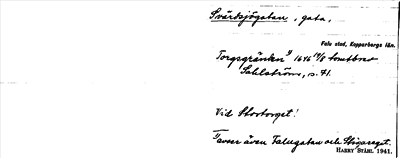 Svärdsjögatan, gata,
Falu stad, Kopparbergs län.
Torgsgränden 1) 1646 19/8 tomtbrev
Sahlström, s. 71.
Vid Stortorget!
1) avser även Falugatan och
HARRY STÅHL 1941.